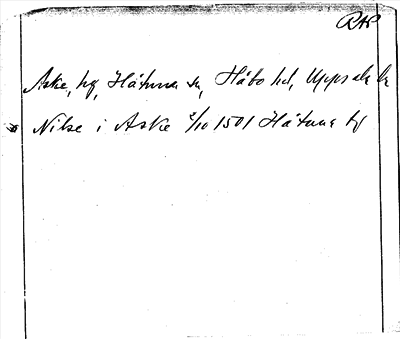 RAP
Aske, hg, Håtuna sn, Håbo hd, Uppsala ln
Nilse i Aske 2/10 1501 Håtuna bf